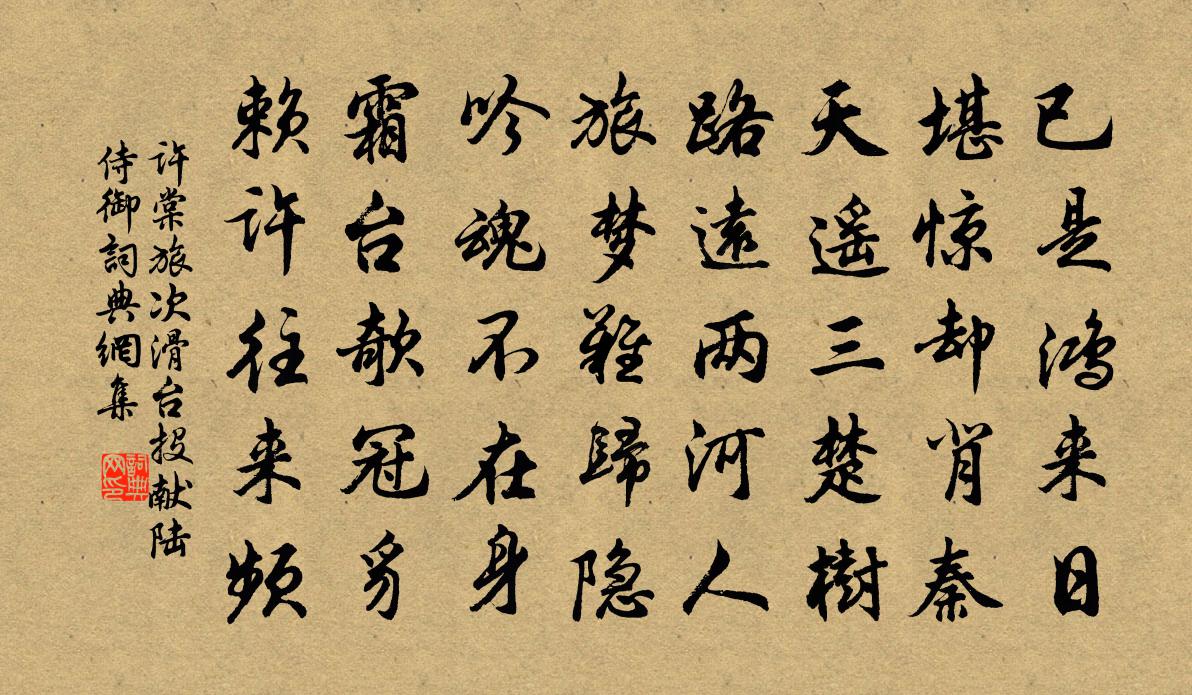 已是鸿来日
堪惊却背秦
天遥三楚樹
路遠两河人
旅梦難歸隐
吟魂不在身
霜台欹冠豸
赖许往来频
许棠旅次滑台投献陆
侍御詞典網集
詞典网印